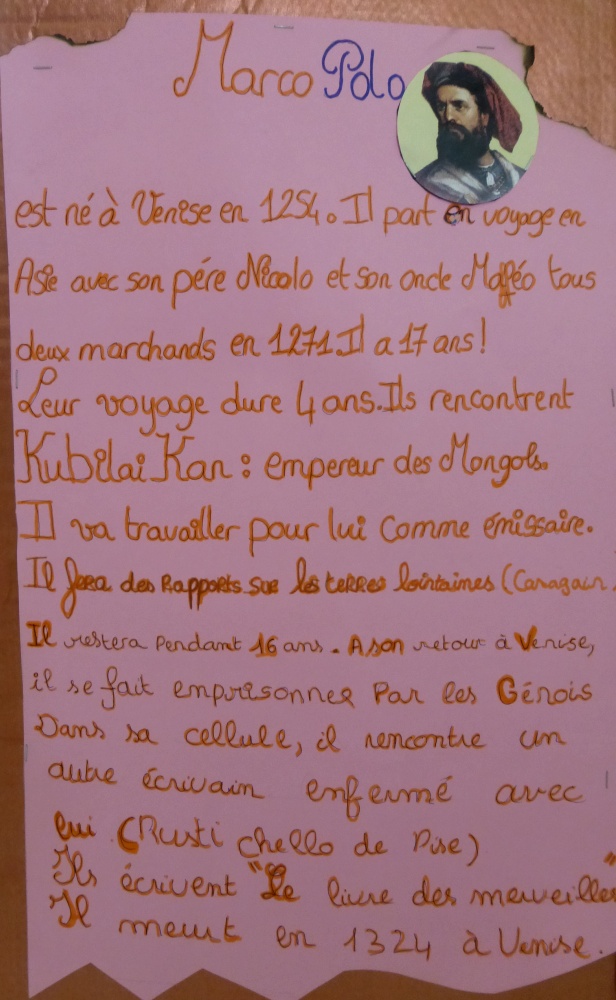 Marco Polo
est né à Venise en 1254. Il part en voyage en
Asie avec son pére Nicolo et son oncle Mafféo tous
deux marchands en 1271. Il a 17 ans!
Leur voyage dure 4 ans. Ils rencontrent
Kubilai Kan : empereur des Mongols.
Il va travailler pour lui comme émissaire.
Il fera des Rapports sur les terres lointaines (Caragain
Il restera Pendant 16 ans. A son retour à Venise,
il se fait emprisonner Par les Génois
Dans sa cellule, il rencontre un
autre écrivain enfermé avec
lui (Rusti chello de Pise)
Ils écrivent "Le livre des merveilles"
Il meurt en 1324 à Venise.